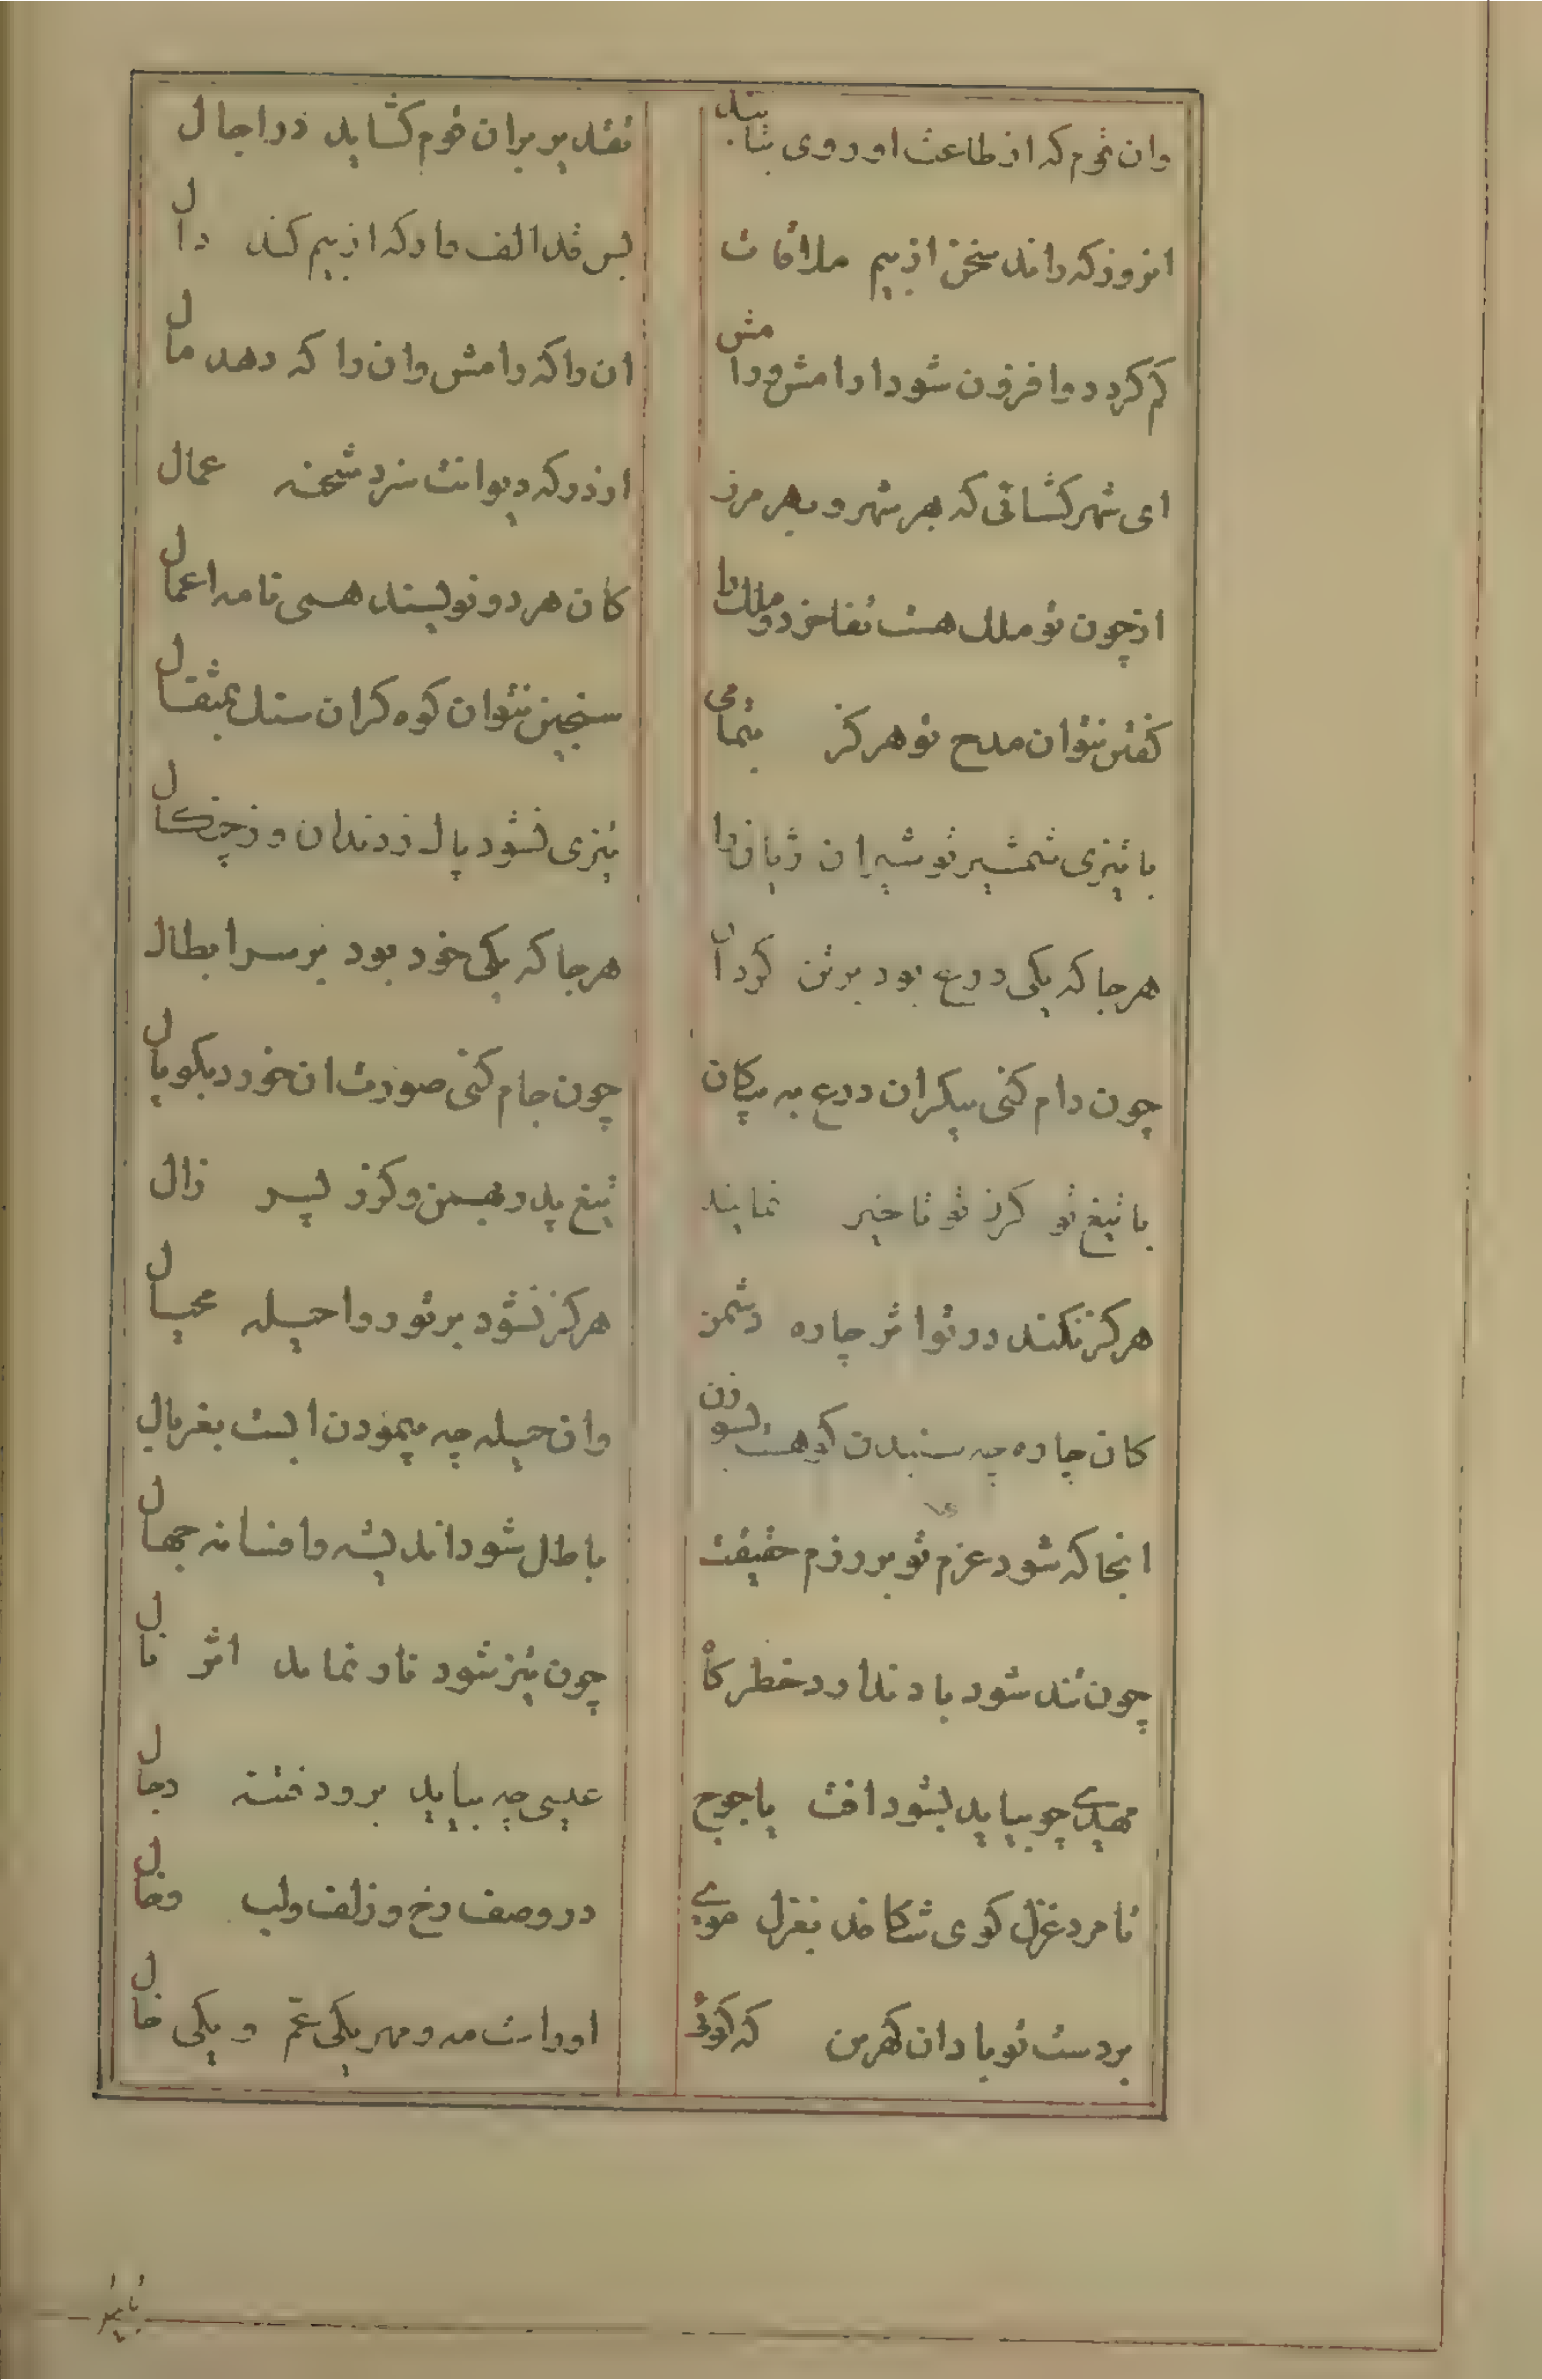 وان قوم که از طاعت او روی بتابند
تقدیر بران قوم کشاید در اجال
انروز که داند سخن از بیم ملاقات
بس قد الف مار که از بیم کند دال
کم کردد و افزون شود ارامش و رامش
ان را که رامش وان را که دهد مال
ای شهرکشائی که بهر شهر و بهر مرز
از درکه دیوانت سزد شحنه عمال
از چون تو ملک هست تفاخر دو ملک را
کان هر دو نویسند همی نامه اعمال
کفتن نتوان مدح تو هرکز بتمامی
سنجین نتوان کوه کران سنک بمثقال
با تیزی شمشیر تو شیران ژیان را
تیزی نشود پاک ز دندان و ز چنکال
هرجا که یکی درع بود بر تن کردان
هرجا که یکی خود بود بر سر ابطال
چون دام کنی پیکر ان درع به پیکان
چون جام کنی صورت ان خود بکوپال
با تیغ تو کرز تو تاخیر نمایند
تیغ پدر بهمن و کرز پسر زال
هرکز نکند در تو اثر چاره دشمن
هرکز نشود بر تو روا حیله محیال
کان چاره چه سنبیدن کوهست بسوزن
وان حیله چه پیمودن ابست بغربال
انجا که شود عزم تو بر رزم حقیقت
باطل شود اندیشه و افسانه جهال
چون تند شود باد ندارد خطر کاه
چون تیز شود نار نماید اثر نال
مهدی چو بیاید بشود افت یاجوج
عیسی چه بیاید برود فتنه دجال
تا مرد غزل کوی شکافد بغزل موی
در وصف رخ و زلف و لب و خال
بر دست تو بادا ن کهر من که کوئی
اوراست مه و مهر یکی عم و یکی خال